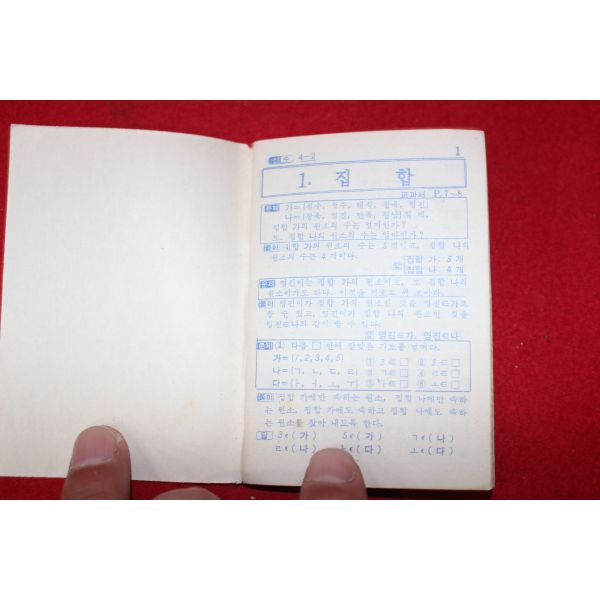 산수 4-2 1
1. 집 합
교과서 P.7~8
문제 가={원수, 정수, 태식, 창욱, 영진}
나={창욱, 영진, 만복, 진남}일 때,
집합 가의 원소의 수는 얼마인가?
또, 집합 나의 원소의 수는 얼마인가?
풀이 집합 가의 원소의 수는 5개이고, 집합 나의
원소의 수는 4개이다.
답 집합 가: 5개
집합 나: 4개
문제 영진이는 집합 가의 원소이고, 또 집합 나의
원소이기도 하다. 이것을 기호로 써 보아라.
풀이 영진이가 집합 가의 원소인 것을 영진∈가로
쓸 수 있고, 영진이가 집합 나의 원소인 것을
영진∈나와 같이 쓸 수 있다.
답 영진∈가, 영진∈나
문제 (1) 다음 □ 안에 알맞은 기호를 넣어라.
가={1, 2, 3, 4, 5} ① 3∈□ ② 5∈□
나={ㄱ, ㄴ, ㄷ, ㄹ} ③ ㄱ∈□ ④ ㄹ∈□
다={ㅏ, ㅓ, ㅗ, ㅜ} ⑤ ∈□ ⑥ ㅗ∈□
풀이 집합 가에만 속하는 원소, 집합 나에만 속하
는 원소, 집합 가에도 속하고 집합 나에도 속하
는 원소를 찾아 내도록 한다.
답 3∈(가) 5∈(가) ㄱ∈(나)
ㄹ∈(나) ∈(다) ㅗ∈(다)